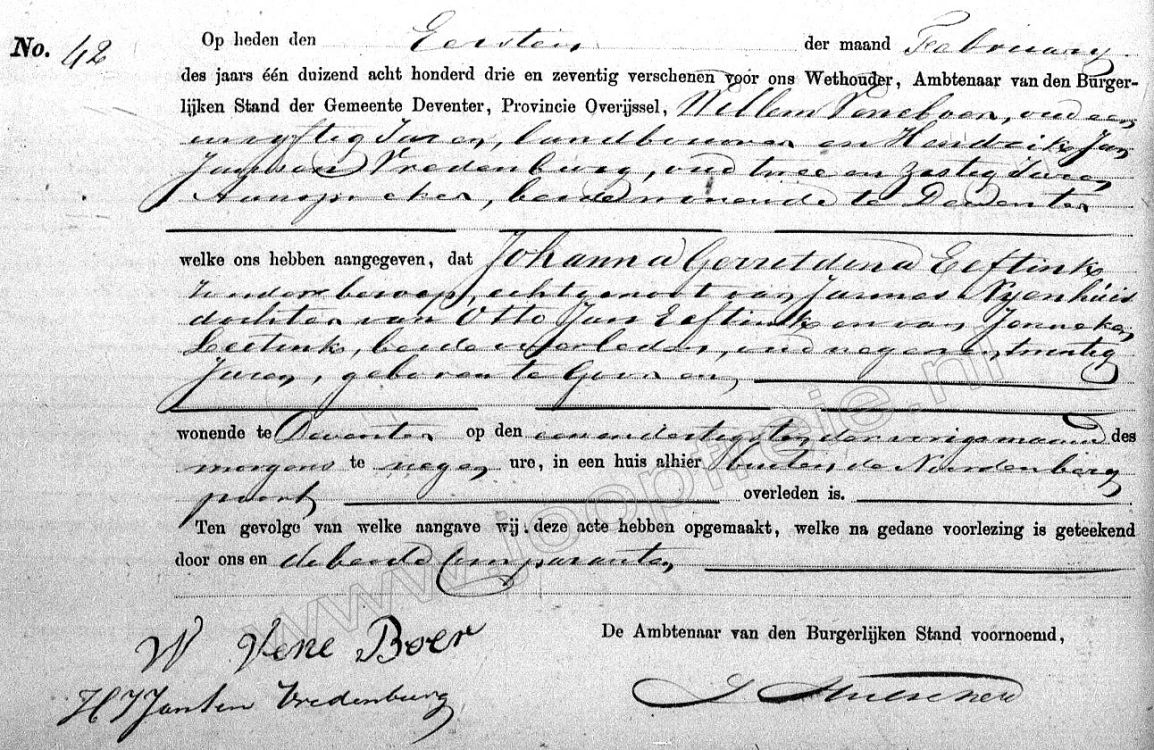 No. 42 Op heden den Eersten der maand February
des jaars één duizend acht honderd drie en zeventig verschenen voor ons Wethouder, Ambtenaar van den Burger-
lijken Stand der Gemeente Deventer, Provincie Overijssel, Willem Veneboer, oud een
en vyftig Jaren, landbouwer en Hendrik Jan
Jansen Vredenburg, oud twee en zestig Jaren
Aanspreker, beide wonende te Deventer
welke ons hebben aangegeven, dat Johanna Gerretdina Eeftink
zonder beroep, echtgenoot van Jannes Nyenhuis
dochter van Otto Jan Eeftink en van Jenneken
beide overleden, oud negen en twintig
Jaren, geboren te Gorssen
wonende te Deventer op den een en dertigsten der vorige maand des
morgens te negen ure, in een huis alhier buiten de Noordenberg
poort overleden is.
Ten gevolge van welke aangave wij deze acte hebben opgemaakt, welke na gedane voorlezing is geteekend
door ons en de beide Comparanten
W Vene Boer
De Ambtenaar van den Burgerlijken Stand voornoemd,
H J Jansen Vredenburg
www.joopfreie.nl